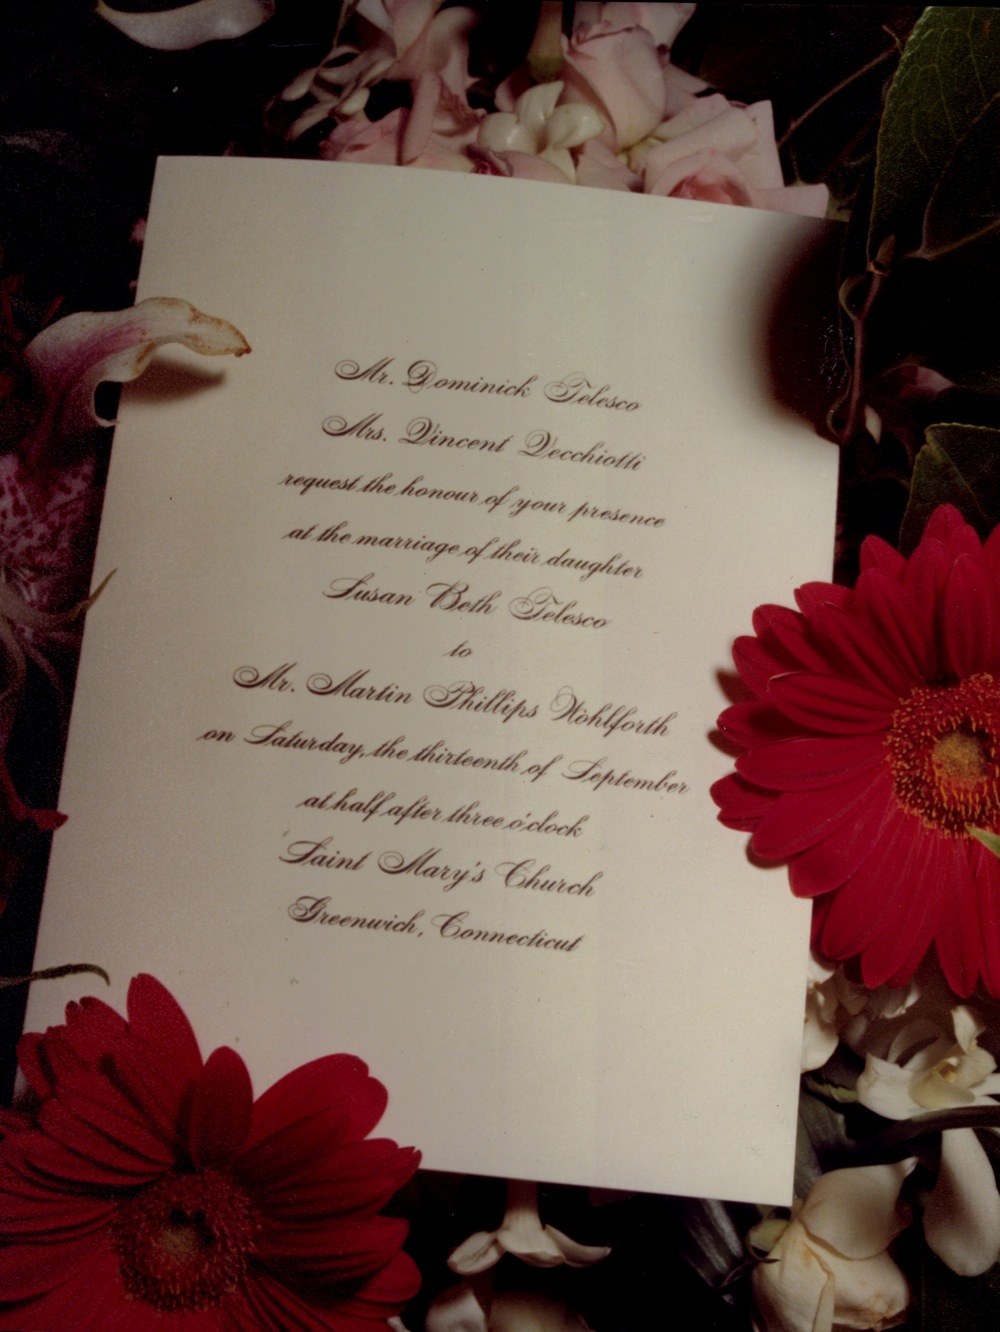 Mr. Dominick Telesco
Mrs. Vincent Vecchiotti
request the honour of your presence
at the marriage of their daughter
Susan Beth Telesco
to
Mr. Martin Phillips Wohlforth
on Saturday, the thirteenth of September
at half after three o'clock
Saint Mary's Church
Greenwich, Connecticut